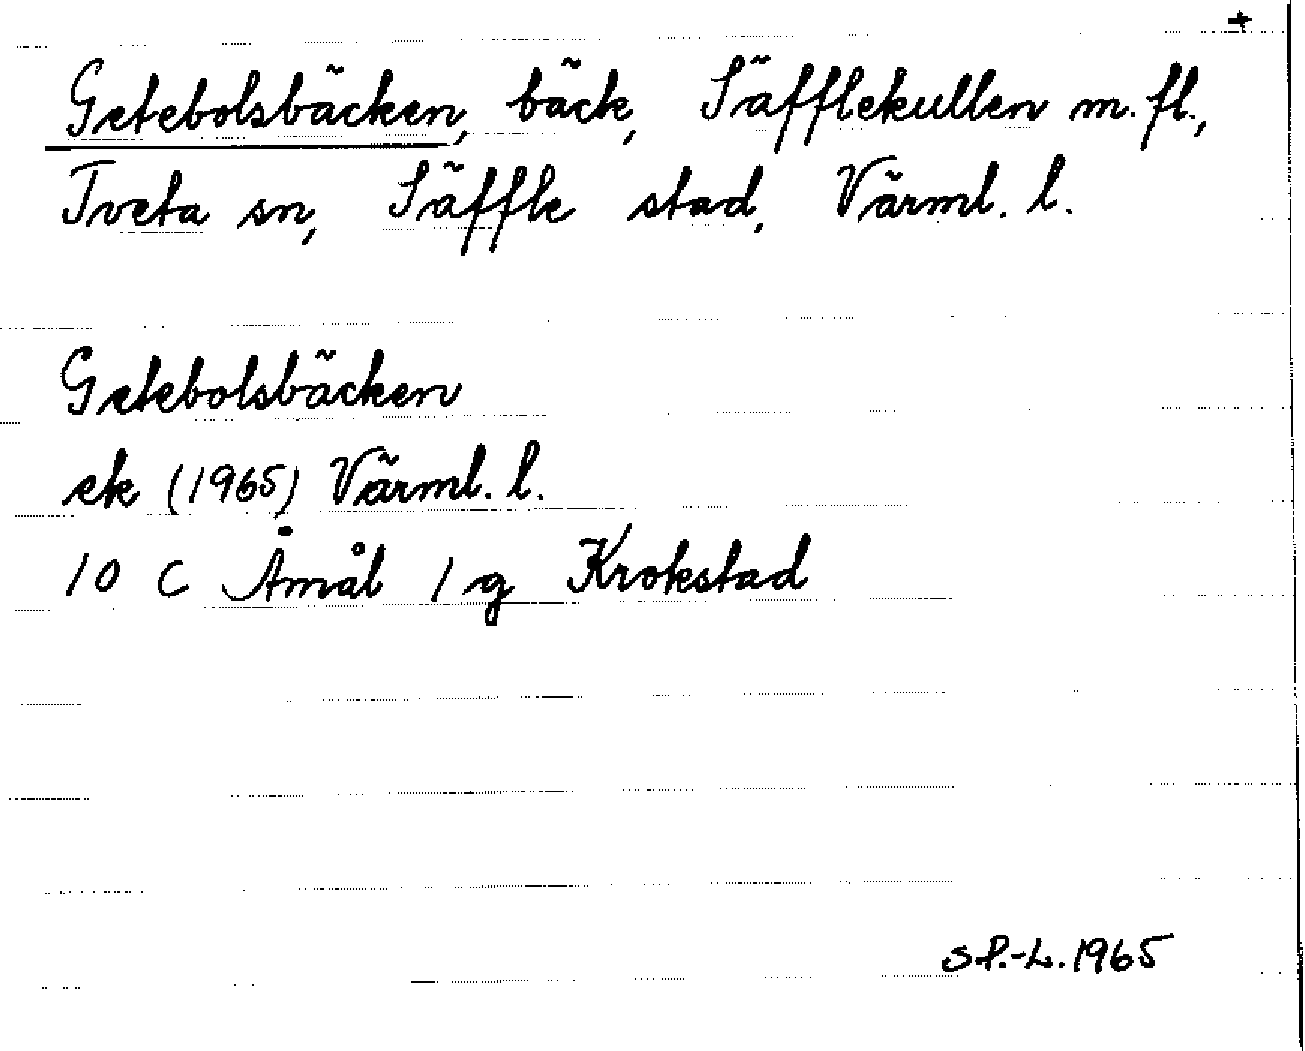 +
Getebolsbäcken, bäck, Säfflekullen m.fl.,
Tveta sn, Säffle stad, Värml. l.
Getebolsbäcken
ek (1965) Värml. l.
10 C Åmål 1 g Krokstad
S.P.-L. 1965